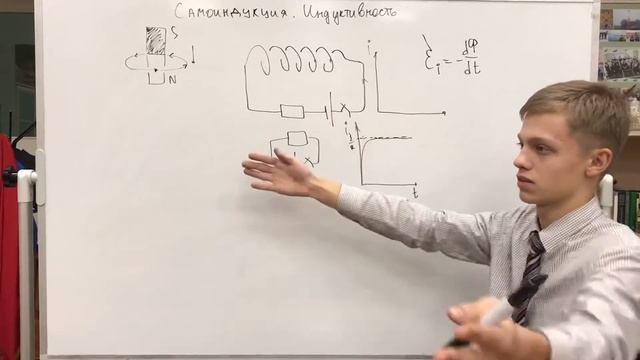 Самоиндукция. Индуктивность
S
N
i
ℰi = - dΦ/dt
i
t